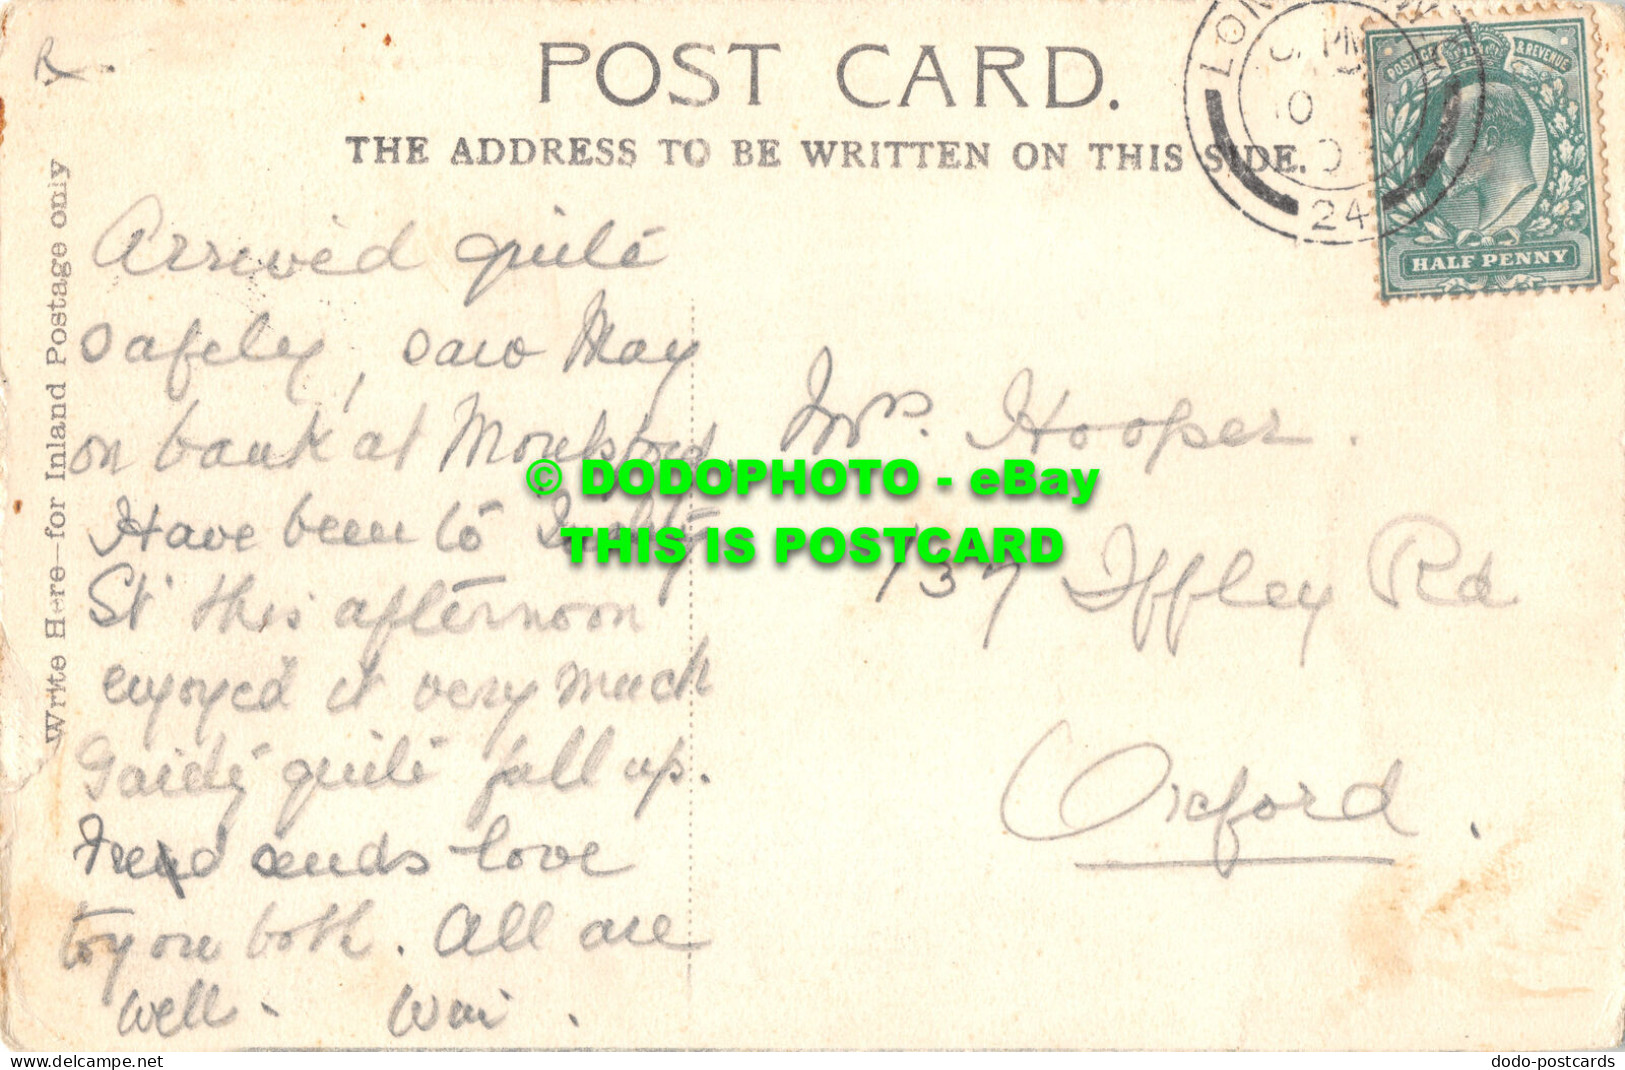 POST CARD.
THE ADDRESS TO BE WRITTEN ON THIS SIDE.
Write Here—for Inland Postage only
POSTAGE & REVENUE
HALF PENNY
PM
24
Arrived quite
safely, saw May
on bank at
Have been to
St this afternoon
enjoyed it very much
quite full up.
sends love
to you both. All are
well. Win.
Mrs. Hooper.
137 Iffley Rd
Oxford.
© DODOPHOTO - eBay
THIS IS POSTCARD
Your Postcard Store since 2010
dodo-postcards